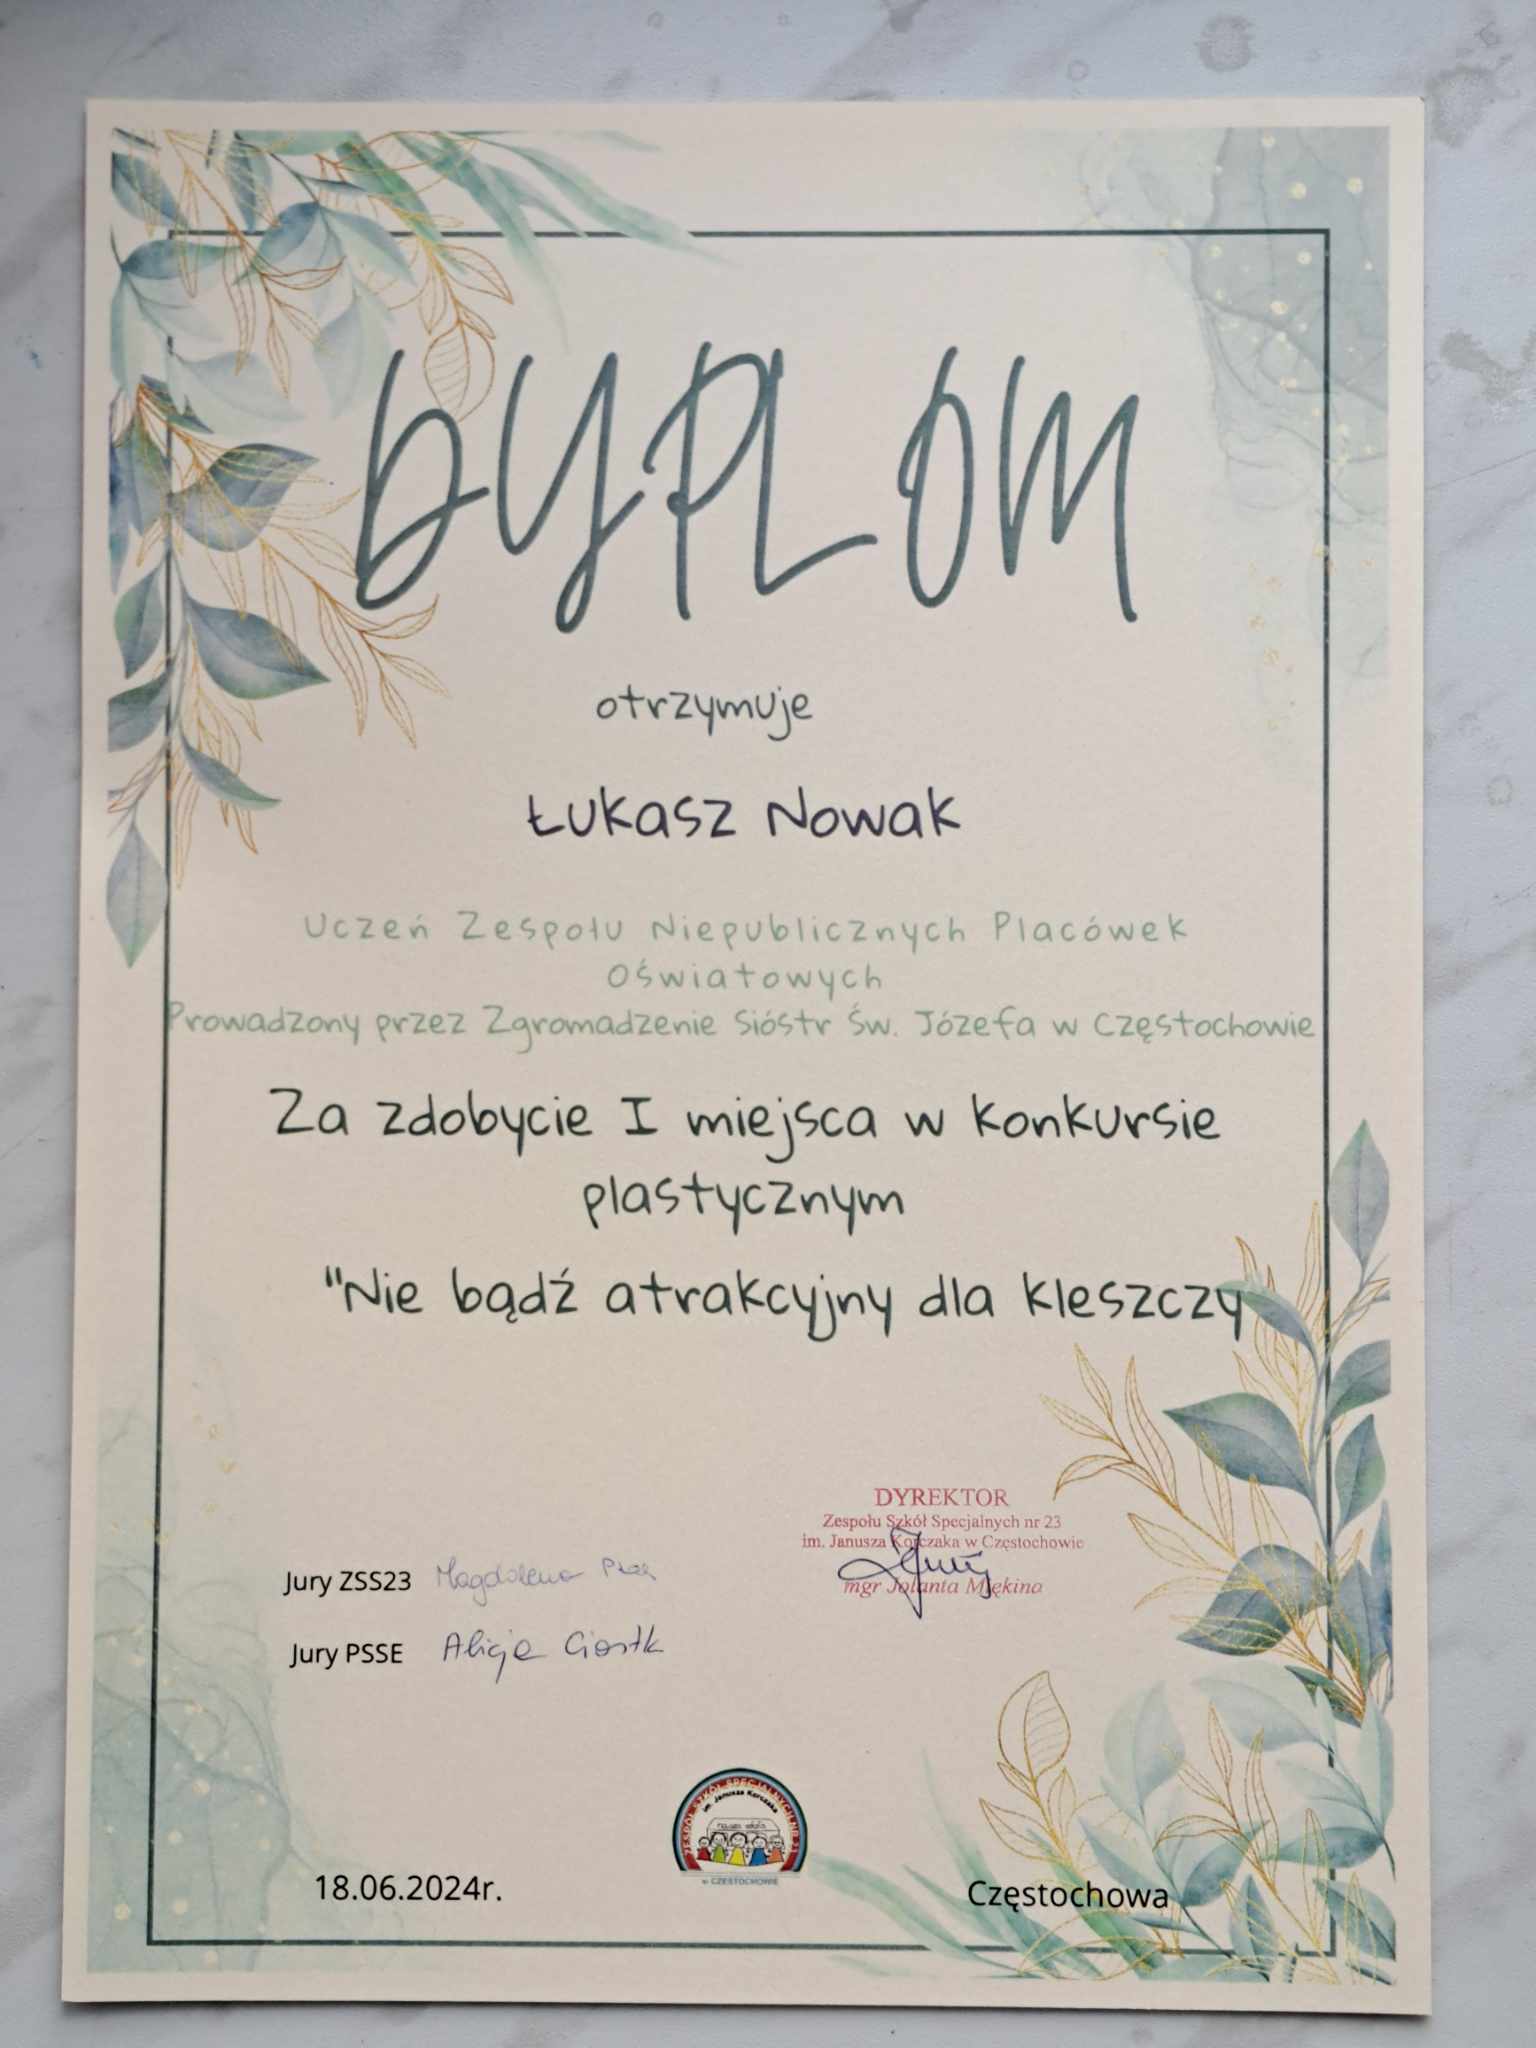 DYPLOM
otrzymuje
Łukasz Nowak
Uczeń Zespołu Niepublicznych Placówek
Oświatowych
Prowadzony przez Zgromadzenie Sióstr Św. Józefa w Częstochowie
Za zdobycie I miejsca w konkursie
plastycznym
"Nie bądź atrakcyjny dla kleszczy
DYREKTOR
Zespołu Szkół Specjalnych nr 23
im. Janusza Korczaka w Częstochowie
mgr Jolanta Mlękina
Jury ZSS23 Magdalena
Jury PSSE Alicja
ZESPÓŁ SZKÓŁ SPECJALNYCH NR 23
im. Janusza Korczaka
nasza szkoła
w CZĘSTOCHOWIE
18.06.2024r.
Częstochowa